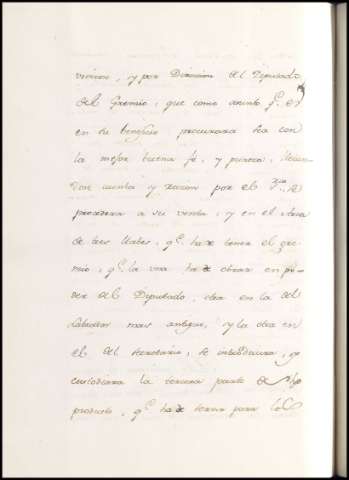 vieren, y por Direccion del Diputado
del Gremio, que como asunto q.e es
en su beneficio procurara sea con
la mejor buena fé, y pureza; llevan-
dose cuenta y razon por el se
procedera a su venta, y en el Arca
de tres llabes, q.e ha de tener el gre-
mio, q.e la una ha de obrar en po-
der del Diputado, otra en la del
Labrador mas antiguo, y la otra en
el del Secretario, se introducira, y
custodiara la tercera parte de
producto, q.e ha de servir para los